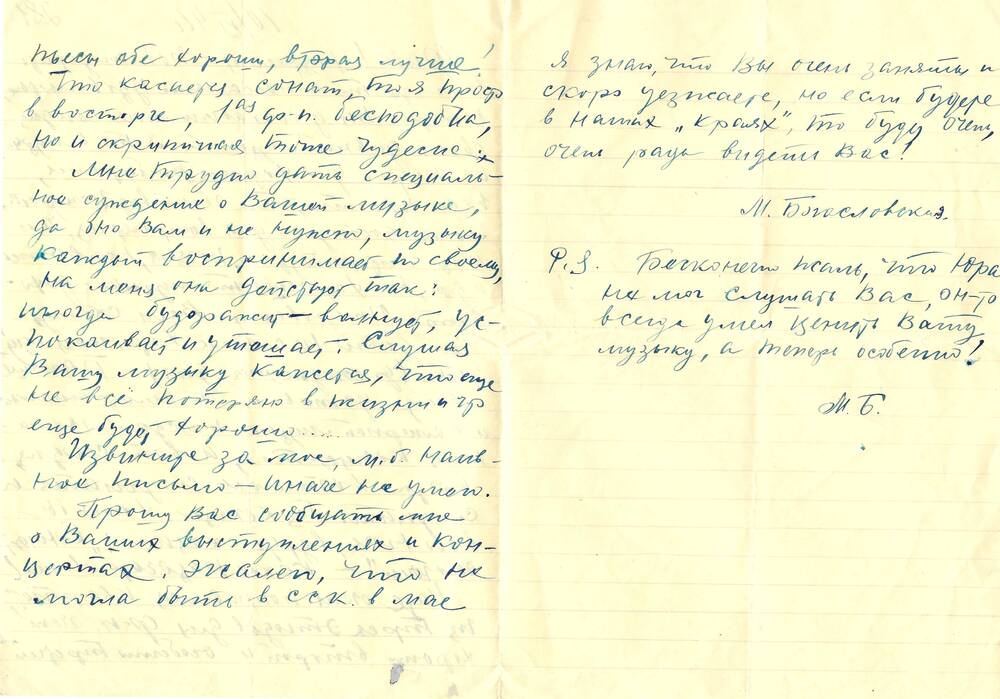 пьесы обе хороши, вторая лучше!
Что касается сонат, то я просто
в восторге, 1ая ф-п. бесподобна,
но и скрипичная тоже чудесна.
Мне трудно дать специаль-
ное суждение о Вашей музыке,
да оно Вам и не нужно, музыку
каждый воспринимает по своему,
на меня она действует так:
иногда будоражит – волнует, ус-
покаивает и утешает. Слушая
Вашу музыку кажется, что еще
не всё потеряно в жизни и что
еще будет хорошо.....
Извините за мое, м.б. наив-
ное письмо – иначе не умею.
Прошу Вас сообщать мне
о Ваших выступлениях и кон-
цертах. Жалею, что не
могла быть в ССК. в мае
Я знаю, что Вы очень заняты и
скоро уезжаете, но если будете
в наших „краях", то буду очень,
очень рада видеть Вас!
М. Богословская.
P.S. Бесконечно жаль, что Юра
не мог слушать Вас, он-то
всегда умел ценить Вашу
музыку, а теперь особенно!
М.Б.